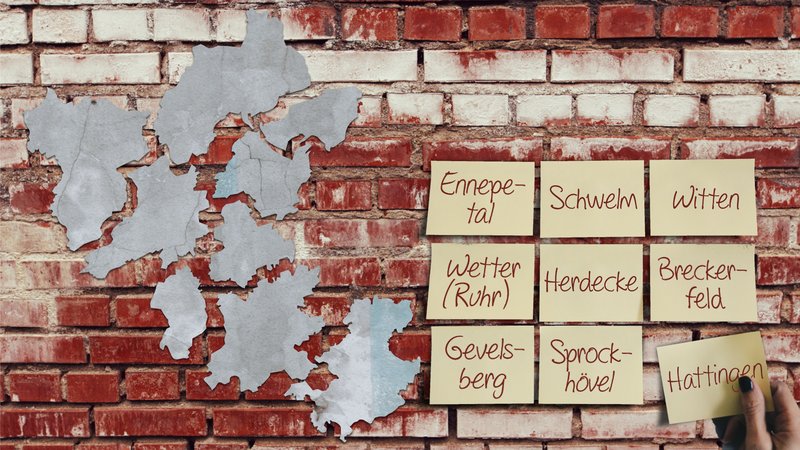 Ennepe-
tal
Schwelm
Witten
Wetter
(Ruhr)
Herdecke
Brecker-
feld
Gevels-
berg
Sprock-
hövel
Hattingen